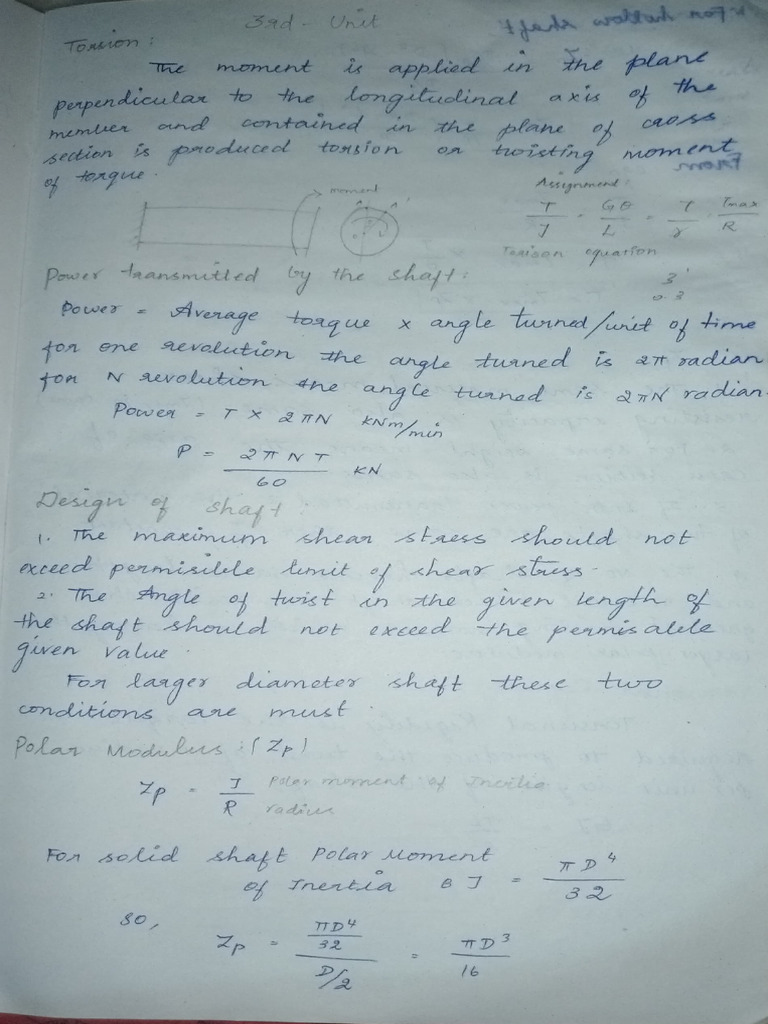 3rd - Unit
Torsion :
The moment is applied in the plane
perpendicular to the longitudinal axis of the
member and contained in the plane of cross
section is produced torsion or twisting moment
of torque.
moment
Assignment:
T/J = Gθ/L = τ/r = τmax/R
Torison equation
Power transmitted by the shaft:
3
0.3
Power = Average torque x angle turned/unit of time
for one revolution the angle turned is 2π radian
for N revolution the angle turned is 2πN radian.
Power = T x 2πN kNm/min
P = 2πNT/60 KN
Design of shaft :
1. The maximum shear stress should not
exceed permisible limit of shear stress.
2. The Angle of twist in the given length of
the shaft should not exceed the permisable
given value.
For larger diameter shaft these two
conditions are must.
Polar Modulus : (Zp)
Zp = J/R Polar moment of Inertia
radius
For solid shaft Polar Moment
of Inertia J = πD⁴/32
so,
Zp = (πD⁴/32)/(D/2) = πD³/16